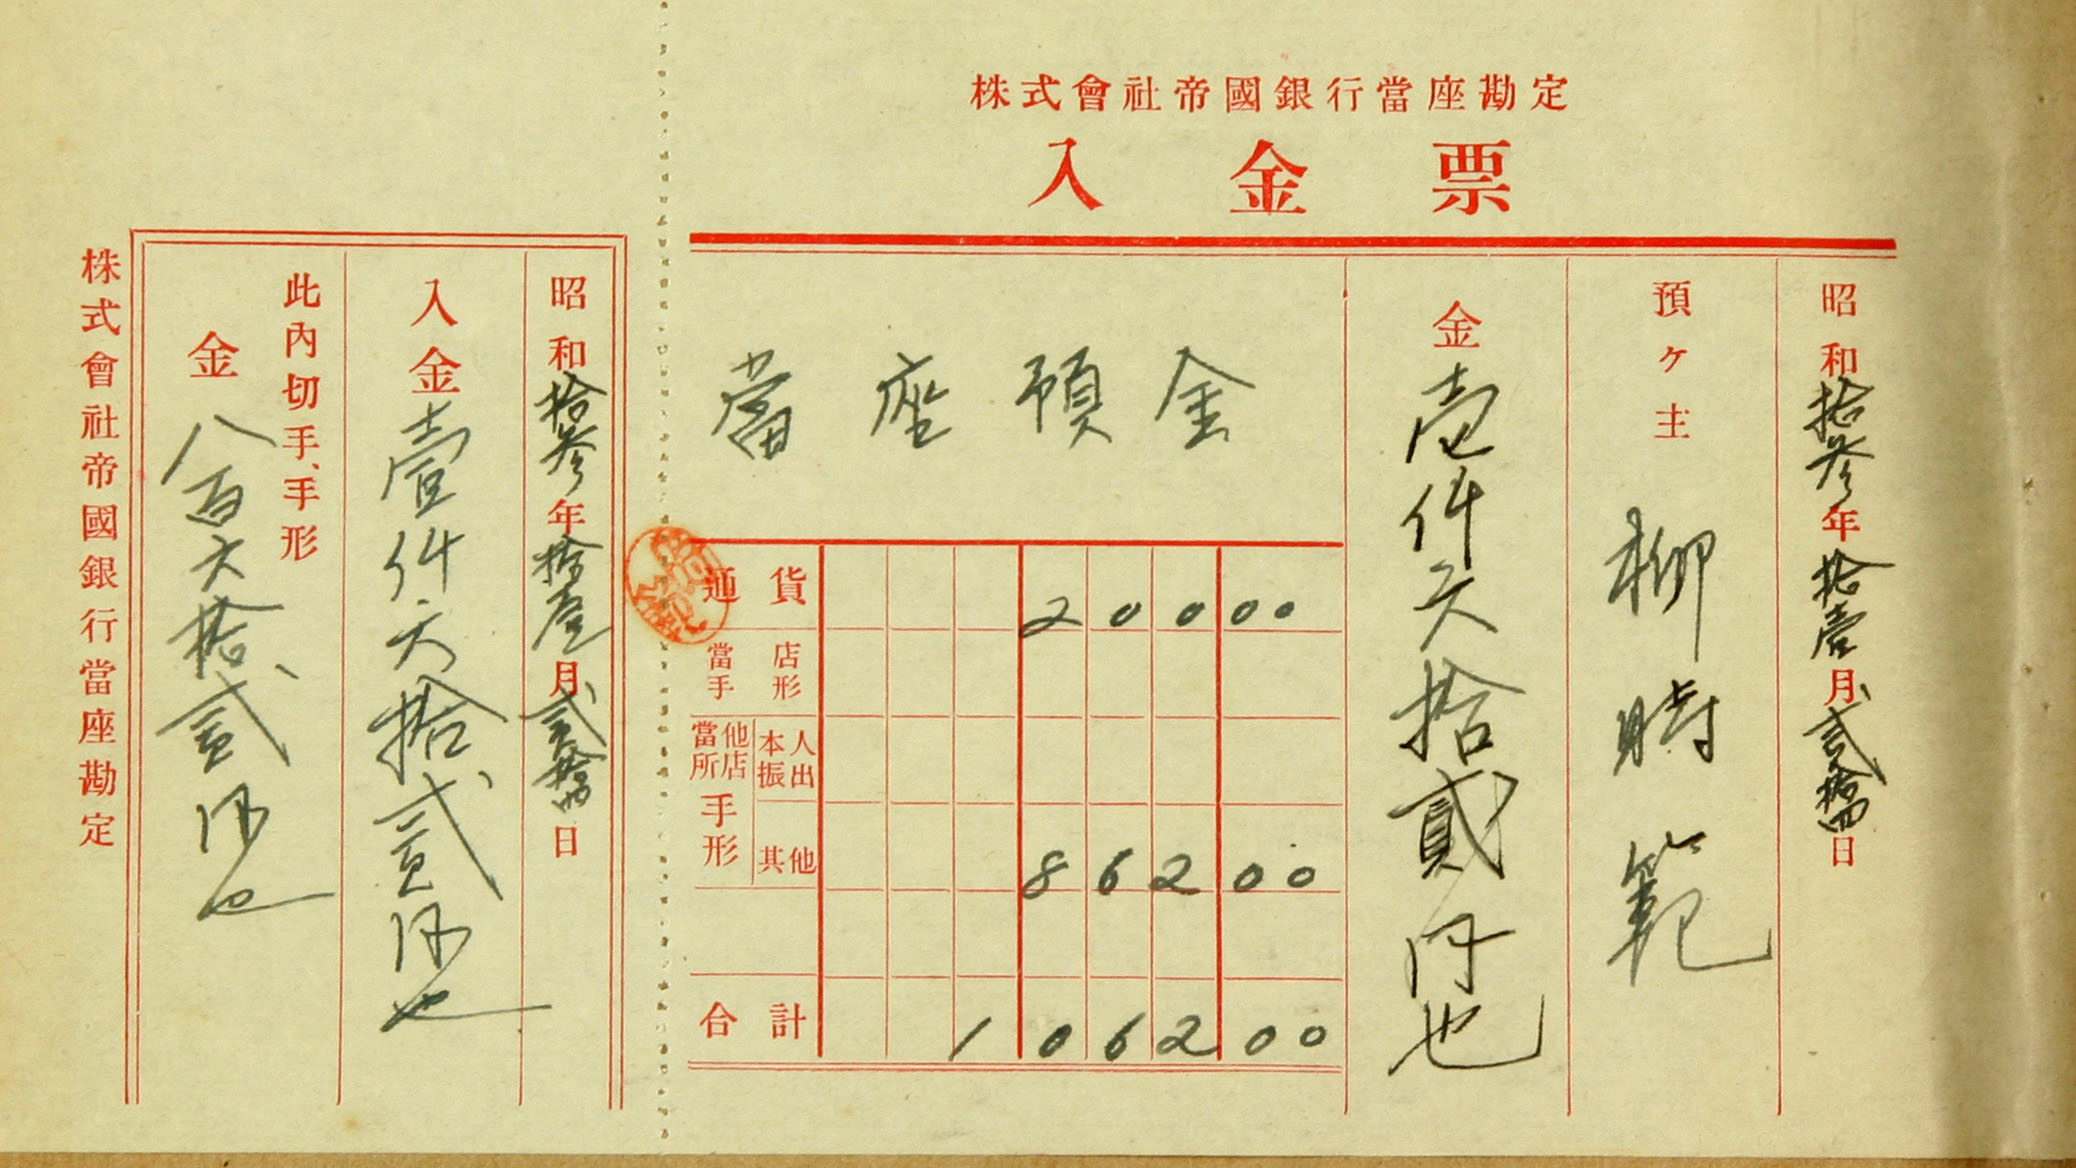 株式會社帝國銀行當座勘定
入金票
昭和拾參年拾壹月貳拾四日
預ケ主 柳時範
金壱仟六拾貳円也
當座預金
通貨 20000
當店手形
當所他店手形 本人振出
其他 86200
合計 106200
昭和拾參年拾壹月貳拾四日
入金壹仟六拾貳円也
此内切手、手形
金八百六拾貳円也
株式會社帝國銀行當座勘定